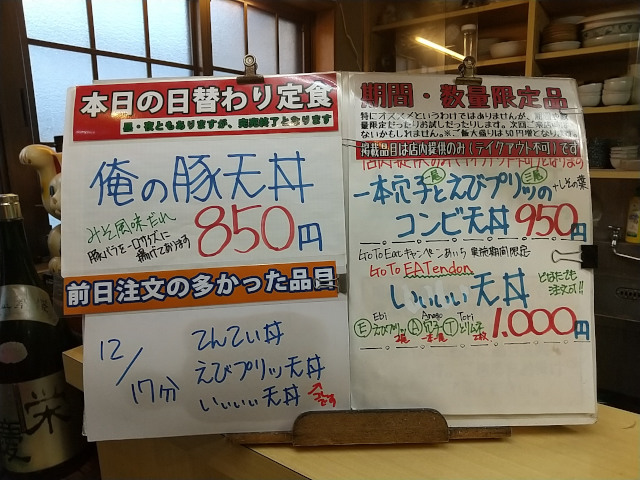 本日の日替わり定食
昼・夜ともありますが、完売終了となります
俺の豚天丼
みそ風味だれ
豚バラを一口サイズに
揚げております
850円
前日注文の多かった品目
12/17分
てんてい丼
えびプリッ天丼
いぃぃぃ天丼
期間・数量限定品
特にオススメというわけではありませんが、
量限定だったりお試しだったりします。次回ご
ないかもしれません。※ご飯大盛りは50円増となり
掲載品目は店内提供のみ(テイクアウト不可)です
一本穴子とえびプリッの
二尾
+しその葉
コンビ天丼 950円
GoToEatキャンペーンあいち 実施期間限定
GoTo EATendon
いぃぃぃ天丼
どなたでも
注文可!!
Ebi Anago Tori
Ⓔえびプリッ Ⓐ穴子 Ⓣとりム子
2尾 一本 2枚
1.000円
栄